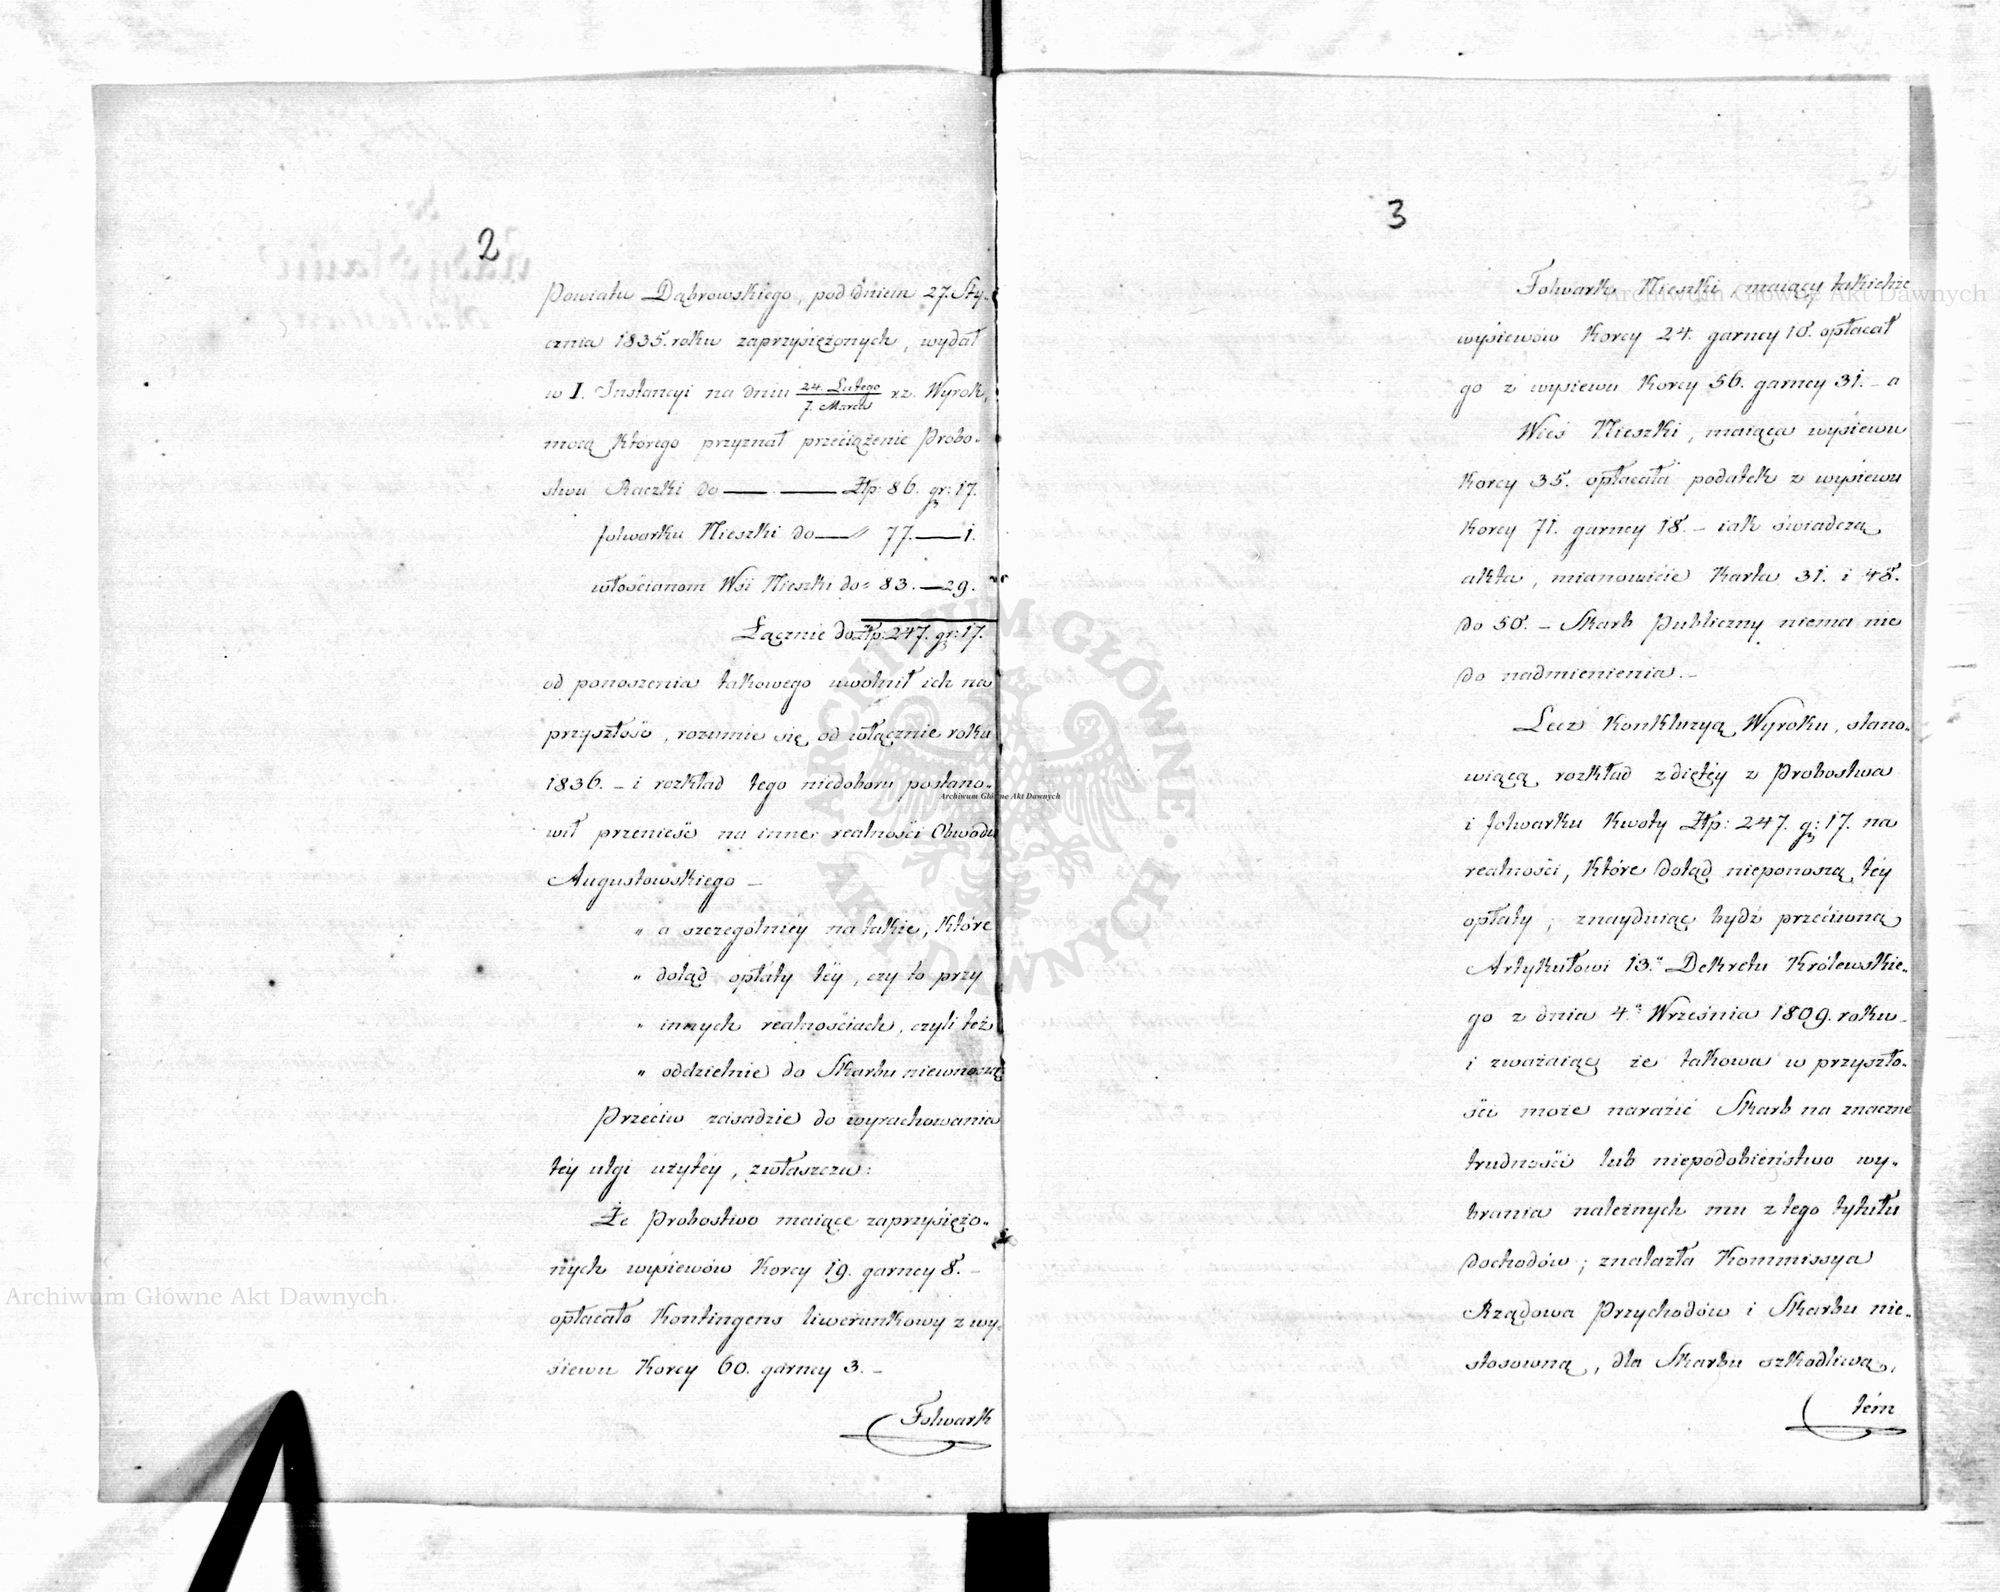 2
Powiatu Dąbrowskiego, pod dniem 27. Sty-
cznia 1835. roku zaprzysiężonych, wydał
w I. Instancyi na dniu 24. Lutego / 7. Marca rz. Wyrok,
mocą którego przyznał przeciążenie Probo-
stwu Raczki do — — Złp: 86. gr: 17.
folwarku Nieszki do — " 77. — 1.
włościanom Wsi Nieszki do " 83. — 29.
Łącznie do Złp: 247. gr: 17.
od ponoszenia takowego uwolnił ich na
przyszłość, rozumie się od włącznie roku
1836. – i rozkład tego niedoboru postano-
wił przenieść na inne realności Obwodu
Augustowskiego –
" a szczególniéy na takie, które
" dotąd opłaty téy, czy to przy
" innych realnościach, czyli też
" oddzielnie do Skarbu niewnoszą
Przeciw zasadzie do wyrachowania
téy ulgi użytéy, zwłaszcza:
Że Probostwo maiące zaprzysiężo-
nych wysiewów Korcy 19. garncy 8. –
opłacało Kontingens liwerunkowy z wy-
siewu Korcy 60. garncy 3. –
Folwark
3
Folwark Nieszki, maiący takichże
wysiewów Korcy 24. garncy 10. opłacał
go z wysiewu Korcy 56. garncy 31. – a
Wieś Nieszki, maiąca wysiewu
Korcy 35. opłacała podatek z wysiewu
Korcy 71. garncy 18. – iak świadczą
akta, mianowicie Karta 31. i 48.
do 50. – Skarb Publiczny niema nic
do nadmienienia. –
Lecz Konkluzyą Wyroku, stano-
wiącą rozkład zdiętéy z Probostwa
i folwarku Kwoty Złp: 247. gr: 17. na
realności, które dotąd nieponoszą téy
opłaty; znayduiąc bydź przeciwną
Artykułowi 13. Dekretu Królewskie-
go z dnia 4. Września 1809. roku –
i zważaiąc że takowa w przyszło-
ści może narazić Skarb na znaczne
trudności lub niepodobieństwo wy-
brania należnych mu z tego tytułu
dochodów; znalazła Kommissya
Rządowa Przychodów i Skarbu nie-
stosowną, dla Skarbu szkodliwą,
tém
Archiwum Główne Akt Dawnych
Archiwum Główne Akt Dawnych
Archiwum Główne Akt Dawnych
ARCHIWUM GŁÓWNE · AKT DAWNYCH ·